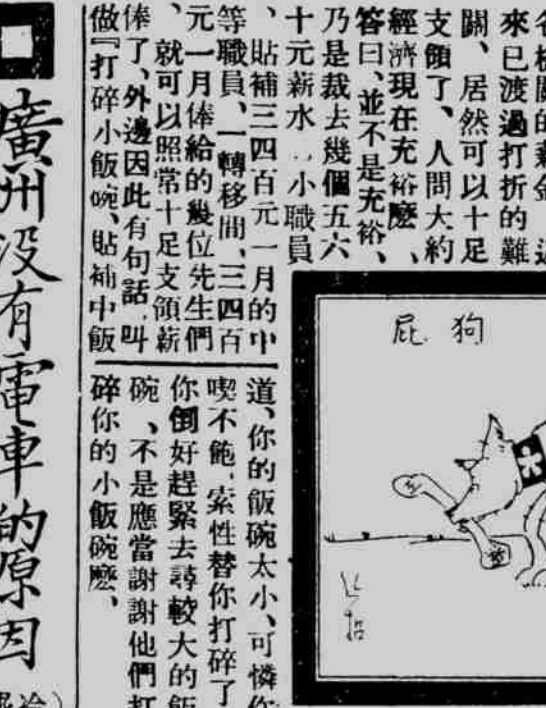 來已渡過打折的難
關、居然可以十足
支領了、人問大約
經濟現在充裕麽、
答曰、並不是充裕、
乃是裁去幾個五六
十元薪水、小職員
、貼補三四百元一月的中
等職員、一轉移間、三四百
元一月俸給的幾位先生們
、就可以照常十足支領薪
俸了、外邊因此有句話、叫
做『打碎小飯碗、貼補中飯
道、你的飯碗太小、可憐你
喫不飽、索性替你打碎了
你倒好趕緊去尋較大的飯
碗、不是應當謝謝他們打
碎你的小飯碗麽、
狗屁
廣州没有電車的原因